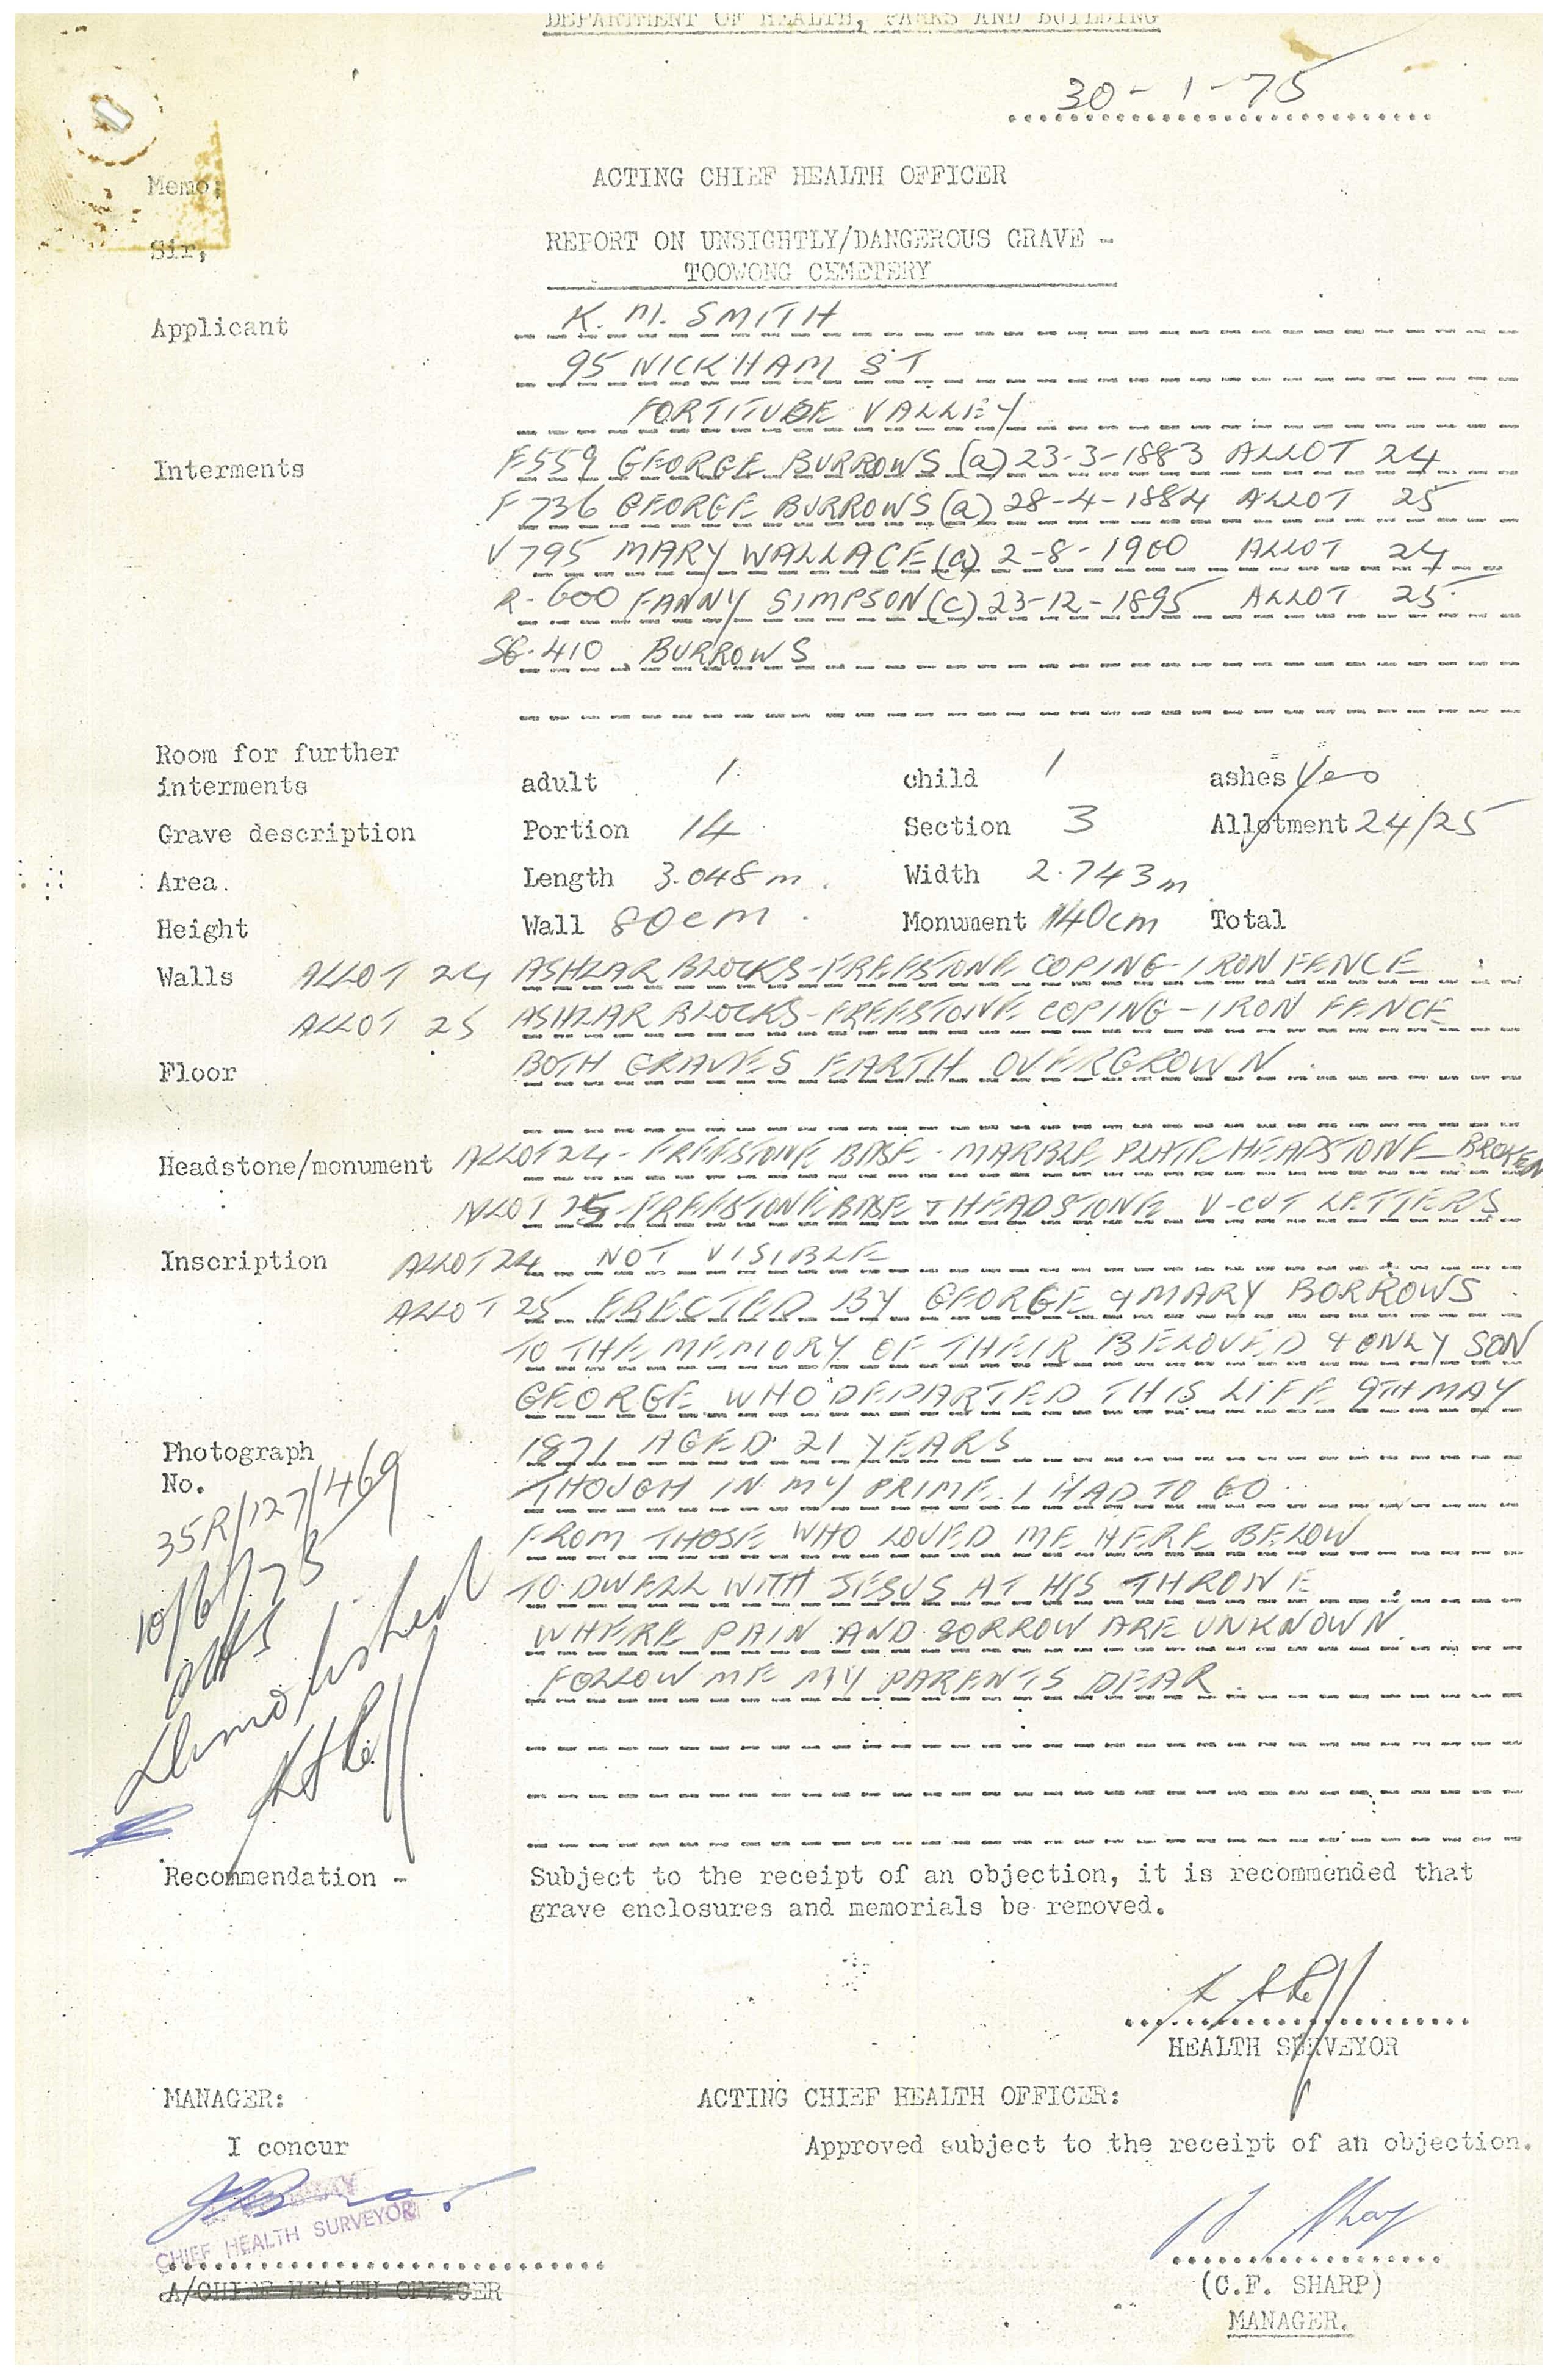 DEPARTMENT OF HEALTH, PARKS AND BUILDING
30-1-75
Memo;
ACTING CHIEF HEALTH OFFICER
Sir,
REPORT ON UNSIGHTLY/DANGEROUS GRAVE -
TOOWONG CEMETERY
Applicant K. M. SMITH
95 WICKHAM ST
FORTITUDE VALLEY
Interments F559 GEORGE BURROWS (a) 23-3-1883 ALLOT 24
F 736 GEORGE BURROWS (a) 28-4-1884 ALLOT 25
V 795 MARY WALLACE (a) 2-8-1900 ALLOT 24
R-600 FANNY SIMPSON (c) 23-12-1895 ALLOT 25
410 BURROWS
Room for further
interments adult 1 child 1 ashes Yes
Grave description Portion 14 Section 3 Allotment 24/25
Area. Length 3.048m. Width 2.743m
Height Wall 80cm. Monument 140cm Total
Walls ALLOT 24 ASHLAR BLOCKS-FREESTONE COPING-IRON FENCE
ALLOT 25 ASHLAR BLOCKS-FREESTONE COPING-IRON FENCE
Floor BOTH GRAVES EARTH OVERGROWN
Headstone/monument ALLOT 24 - FREESTONE BASE - MARBLE PLATE HEADSTONE BROKEN
ALLOT 25-FREESTONE BASE + HEADSTONE V-CUT LETTERS
Inscription ALLOT 24 NOT VISIBLE
ALLOT 25 ERECTED BY GEORGE & MARY BORROWS
TO THE MEMORY OF THEIR BELOVED & ONLY SON
GEORGE WHO DEPARTED THIS LIFE 9TH MAY
1871 AGED 21 YEARS
Photograph
No.
35R/127/469
10/6/75
Demolished
THOUGH IN MY PRIME I HAD TO GO
FROM THOSE WHO LOVED ME HERE BELOW
TO DWELL WITH JESUS AT HIS THRONE
WHERE PAIN AND SORROW ARE UNKNOWN.
FOLLOW ME MY PARENTS DEAR.
Recommendation - Subject to the receipt of an objection, it is recommended that
grave enclosures and memorials be removed.
HEALTH SURVEYOR
MANAGER: ACTING CHIEF HEALTH OFFICER:
I concur Approved subject to the receipt of an objection.
CHIEF HEALTH SURVEYOR
A/CHIEF HEALTH OFFICER
(C.F. SHARP)
MANAGER.